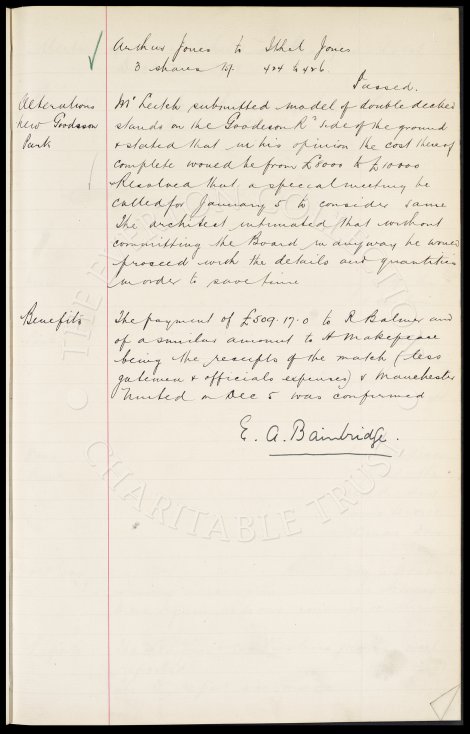 Arthur Jones to Ithel Jones
3 shares 484 to 486
Passed.
Alterations
New Goodison
Park
Mr Leitch submitted model of double decked
stands on the Goodison Rd side of the ground
& stated that in his opinion the cost thereof
complete would be from £8000 to £10000
Resolved that a special meeting be
called for January 5 to consider same
The architect intimated that without
committing the Board in anyway he would
proceed with the details and quantities
in order to save time
Benefits
The payment of £509.17.0 to R Balmer and
of a similar amount to H Makepeace
being the receipts of the match (less
gatemen & officials expenses) v Manchester
United on Dec 5 was confirmed
E. A. Bainbridge.
CHARITABLE TRUST